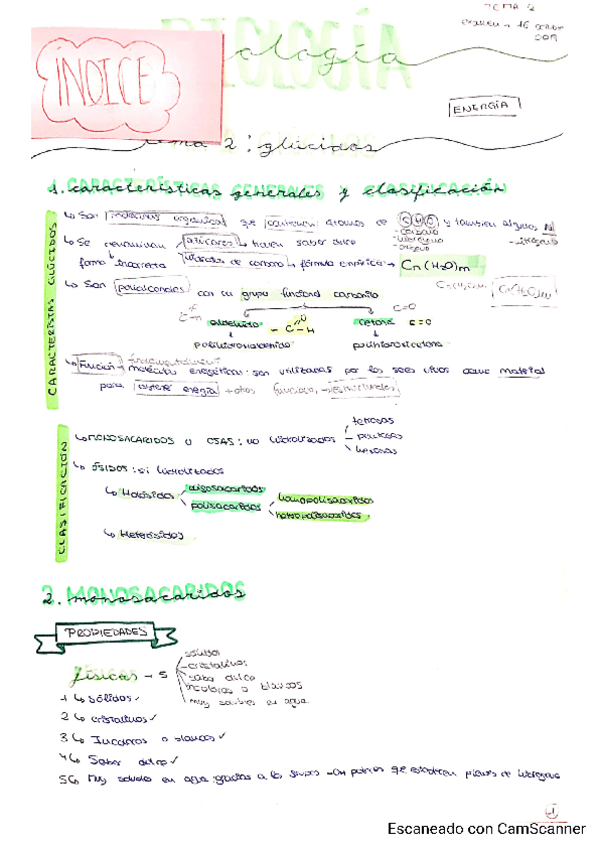 TEMA 2
examen → 16
BIOLOGÍA
ología
ÍNDICE
ENERGÍA
2: glúcidos
1. características generales y clasificación
CARACTERÍSTAS GLÚCIDOS
↳ Son que contienen átomos de C H O y también algunos N
↳ Se denominan azúcares → tienen sabor dulce
forma incorrecta hidratos de carbono → fórmula empírica → Cn(H2O)m
↳ Son polialcoholes con su grupo funcional carbonilo
C=O
aldehído - C - H
cetona C=O
polihidroxialdehído
polihidroxicetona
↳ Función: moléculas energéticas: son utilizadas por los seres vivos como material
para obtener energía → otras funciones → estructurales
CLASIFICACIÓN
↳ MONOSACÁRIDOS U OSAS: no hidrolizados
tetrosas
pentosas
hexosas
↳ ÓSIDOS: si hidrolizados
↳ Holósidos
oligosacáridos
polisacáridos
homopolisacáridos
heteropolisacáridos
↳ Heterósidos
2. MONOSACÁRIDOS
monosacáridos
PROPIEDADES
físicas - 5
sólidos
cristalinos
sabor dulce
incoloros o blancos
muy solubles en agua
1 ↳ Sólidos ✓
2 ↳ cristalinos ✓
3 ↳ Incoloros o blancos ✓
4 ↳ Sabor dulce ✓
5 ↳ Muy solubles en agua gracias a los grupos -OH polares que establecen puentes de hidrógeno
1
Escaneado con CamScanner